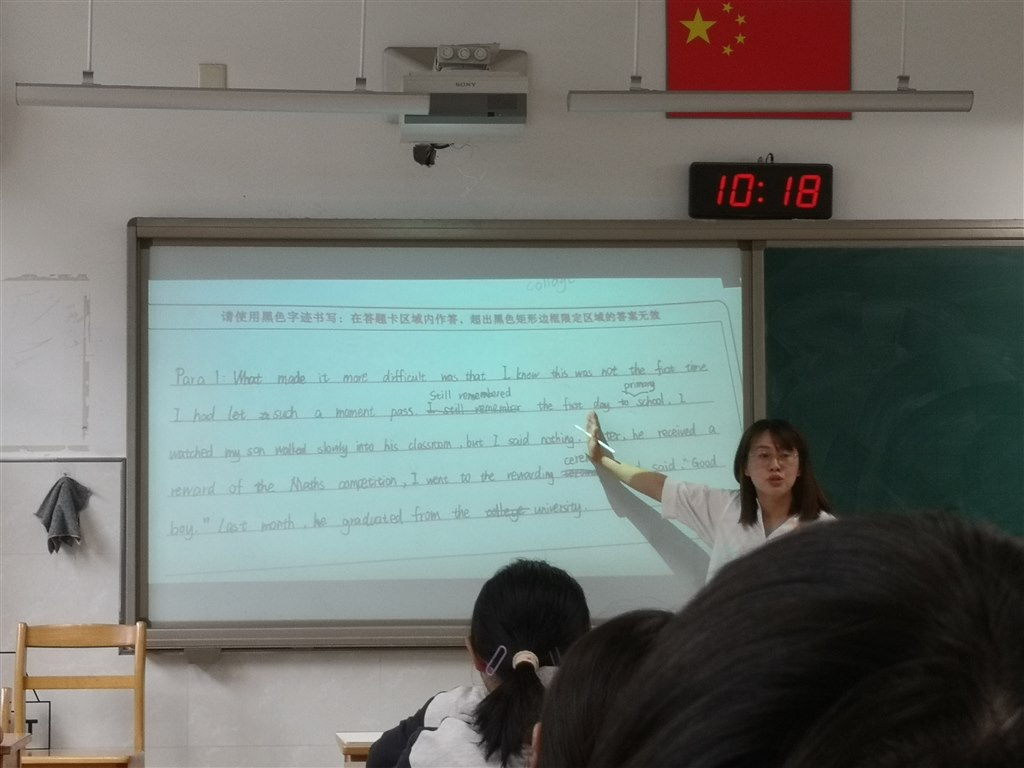 SONY
10:18
college
请使用黑色字迹书写：在答题卡区域内作答，超出黑色矩形边框限定区域的答案无效
Para 1: What made it more difficult was that I knew this was not the first time
Still remembered primary
I had let such a moment pass. I still remember the first day to school. I
watched my son walked slowly into his classroom, but I said nothing. he received a
cere
reward of the Maths competition, I went to the rewarding said: "Good
boy." Last month, he graduated from the college university.
T